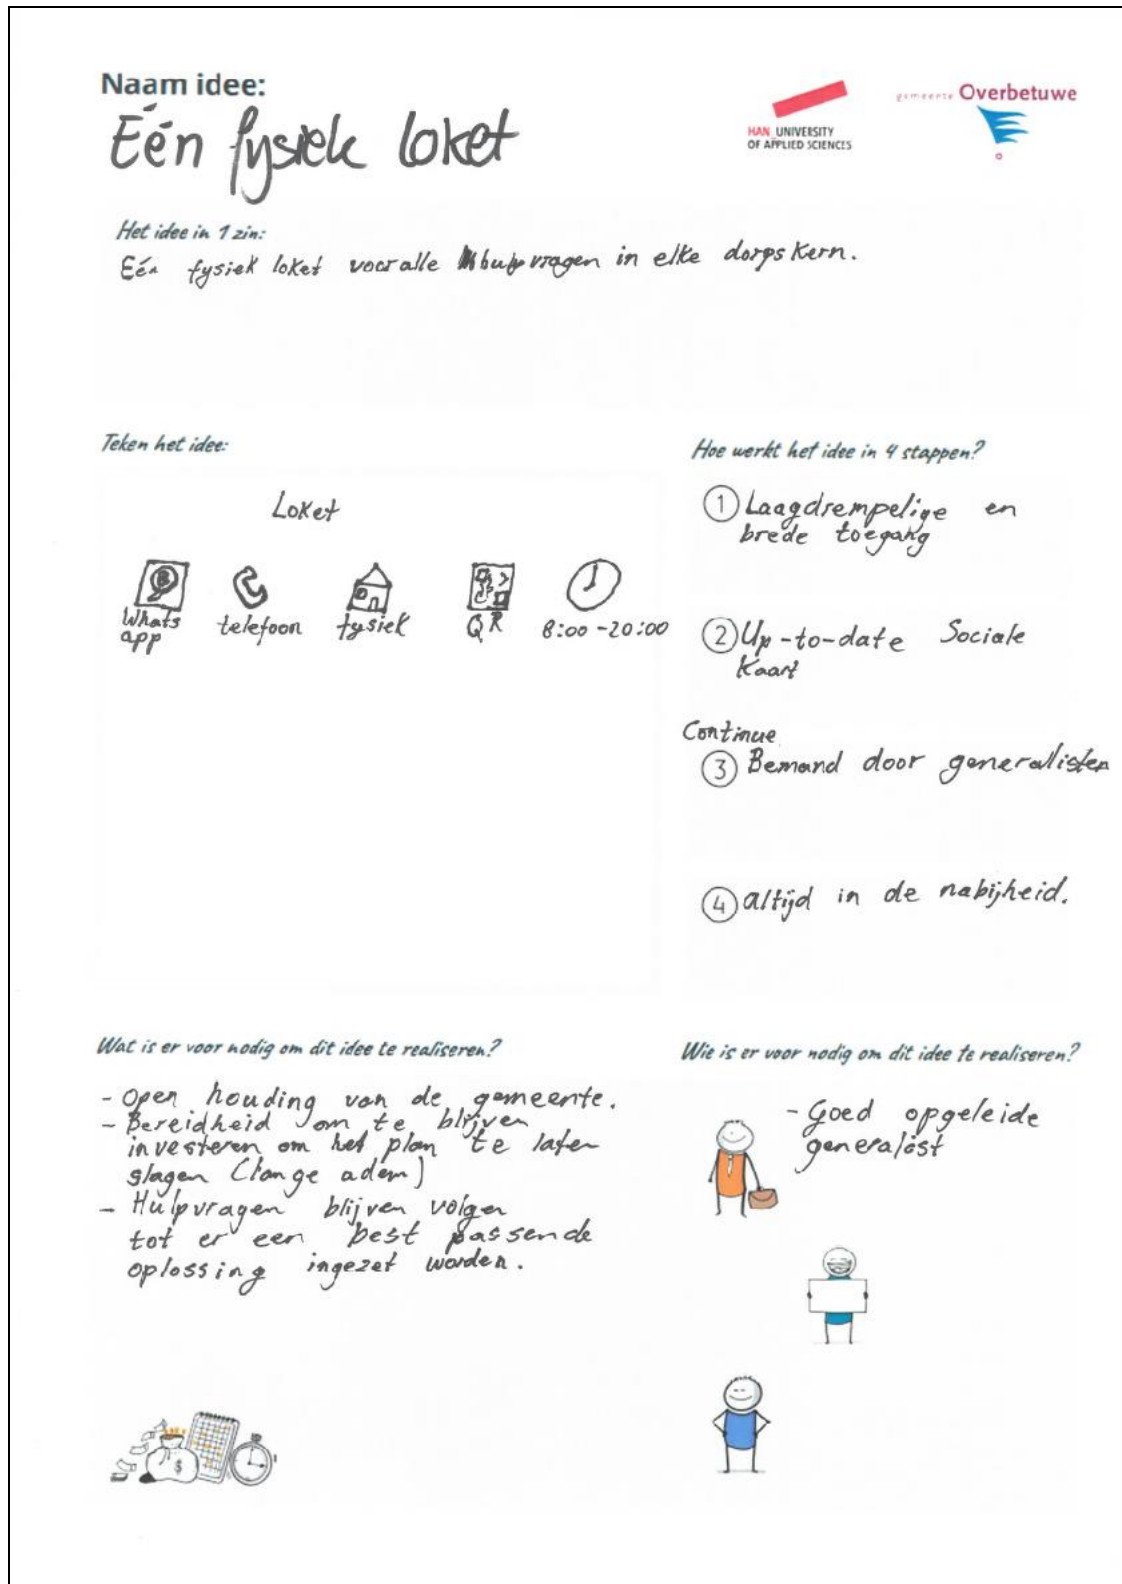 Naam idee:
Eén fysiek loket
HAN_UNIVERSITY
OF APPLIED SCIENCES
gemeente Overbetuwe
Het idee in 1 zin:
Eén fysiek loket voor alle hulpvragen in elke dorpskern.
Teken het idee:
Loket
Whats
app
telefoon
fysiek
QR
8:00-20:00
Hoe werkt het idee in 4 stappen?
1 Laagdrempelige en
brede toegang
2 Up-to-date Sociale
Kaart
Continue
3 Bemand door generalisten
4 altijd in de nabijheid.
Wat is er voor nodig om dit idee te realiseren?
- Open houding van de gemeente.
- Bereidheid om te blijven
investeren om het plan te laten
slagen (lange adem)
- Hulpvragen blijven volgen
tot er een best passende
oplossing ingezet worden.
$
Wie is er voor nodig om dit idee te realiseren?
- Goed opgeleide
generalist